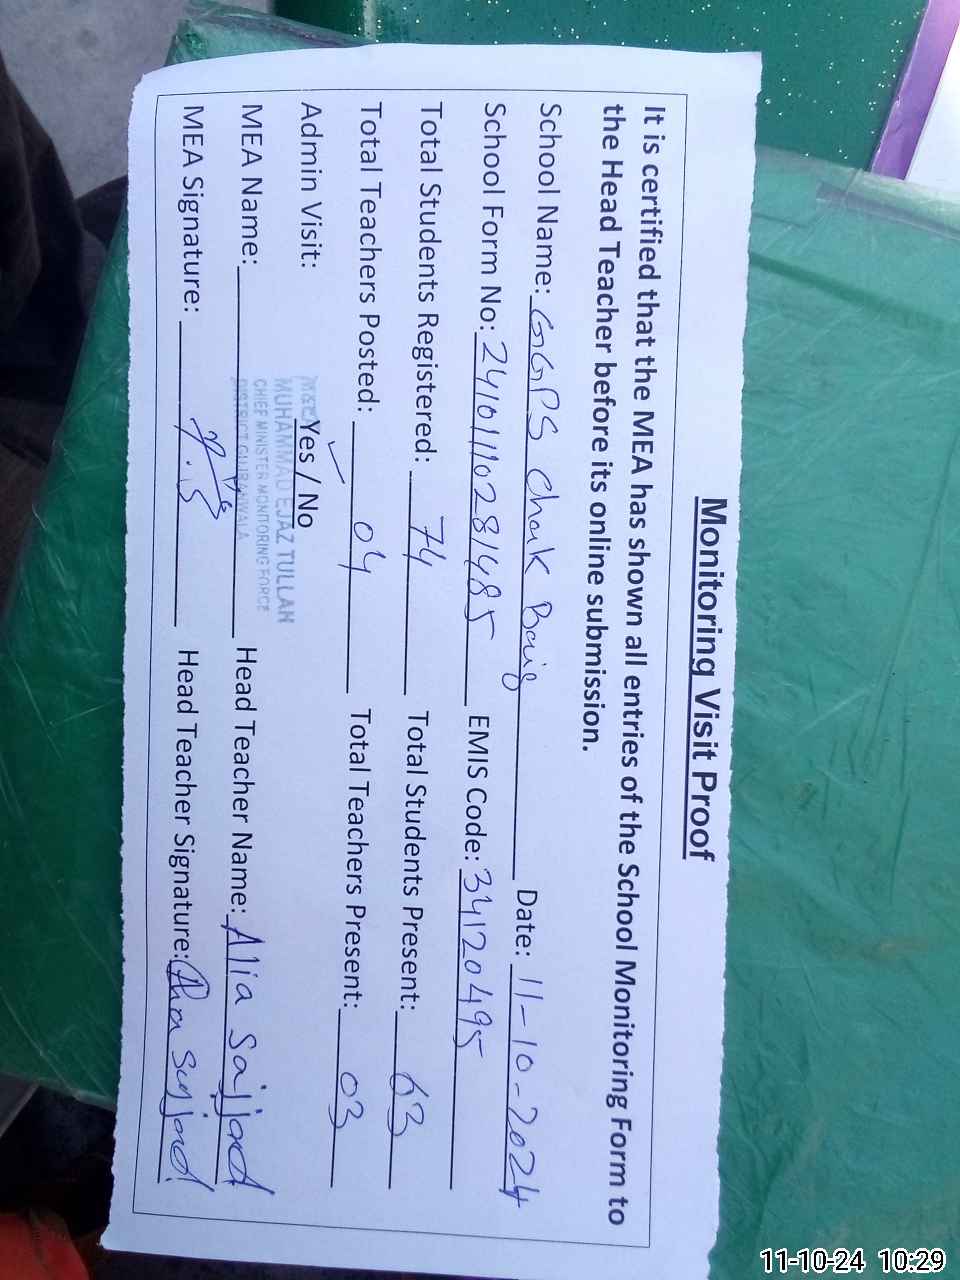 Monitoring Visit Proof
It is certified that the MEA has shown all entries of the School Monitoring Form to
the Head Teacher before its online submission.
School Name: GGPS Chak Baig Date: 11-10-2024
School Form No: 2410110281485 EMIS Code: 34120495
Total Students Registered: 74 Total Students Present: 63
Total Teachers Posted: 04 Total Teachers Present: 03
Admin Visit: Yes / No
MUHAMMAD EJAZ TULLAH
CHIEF MINISTER MONITORING FORCE
DISTRICT GUJRANWALA
MEA Name: Head Teacher Name: Alia Sajjad
MEA Signature: Head Teacher Signature: Sajjad
11-10-24 10:29